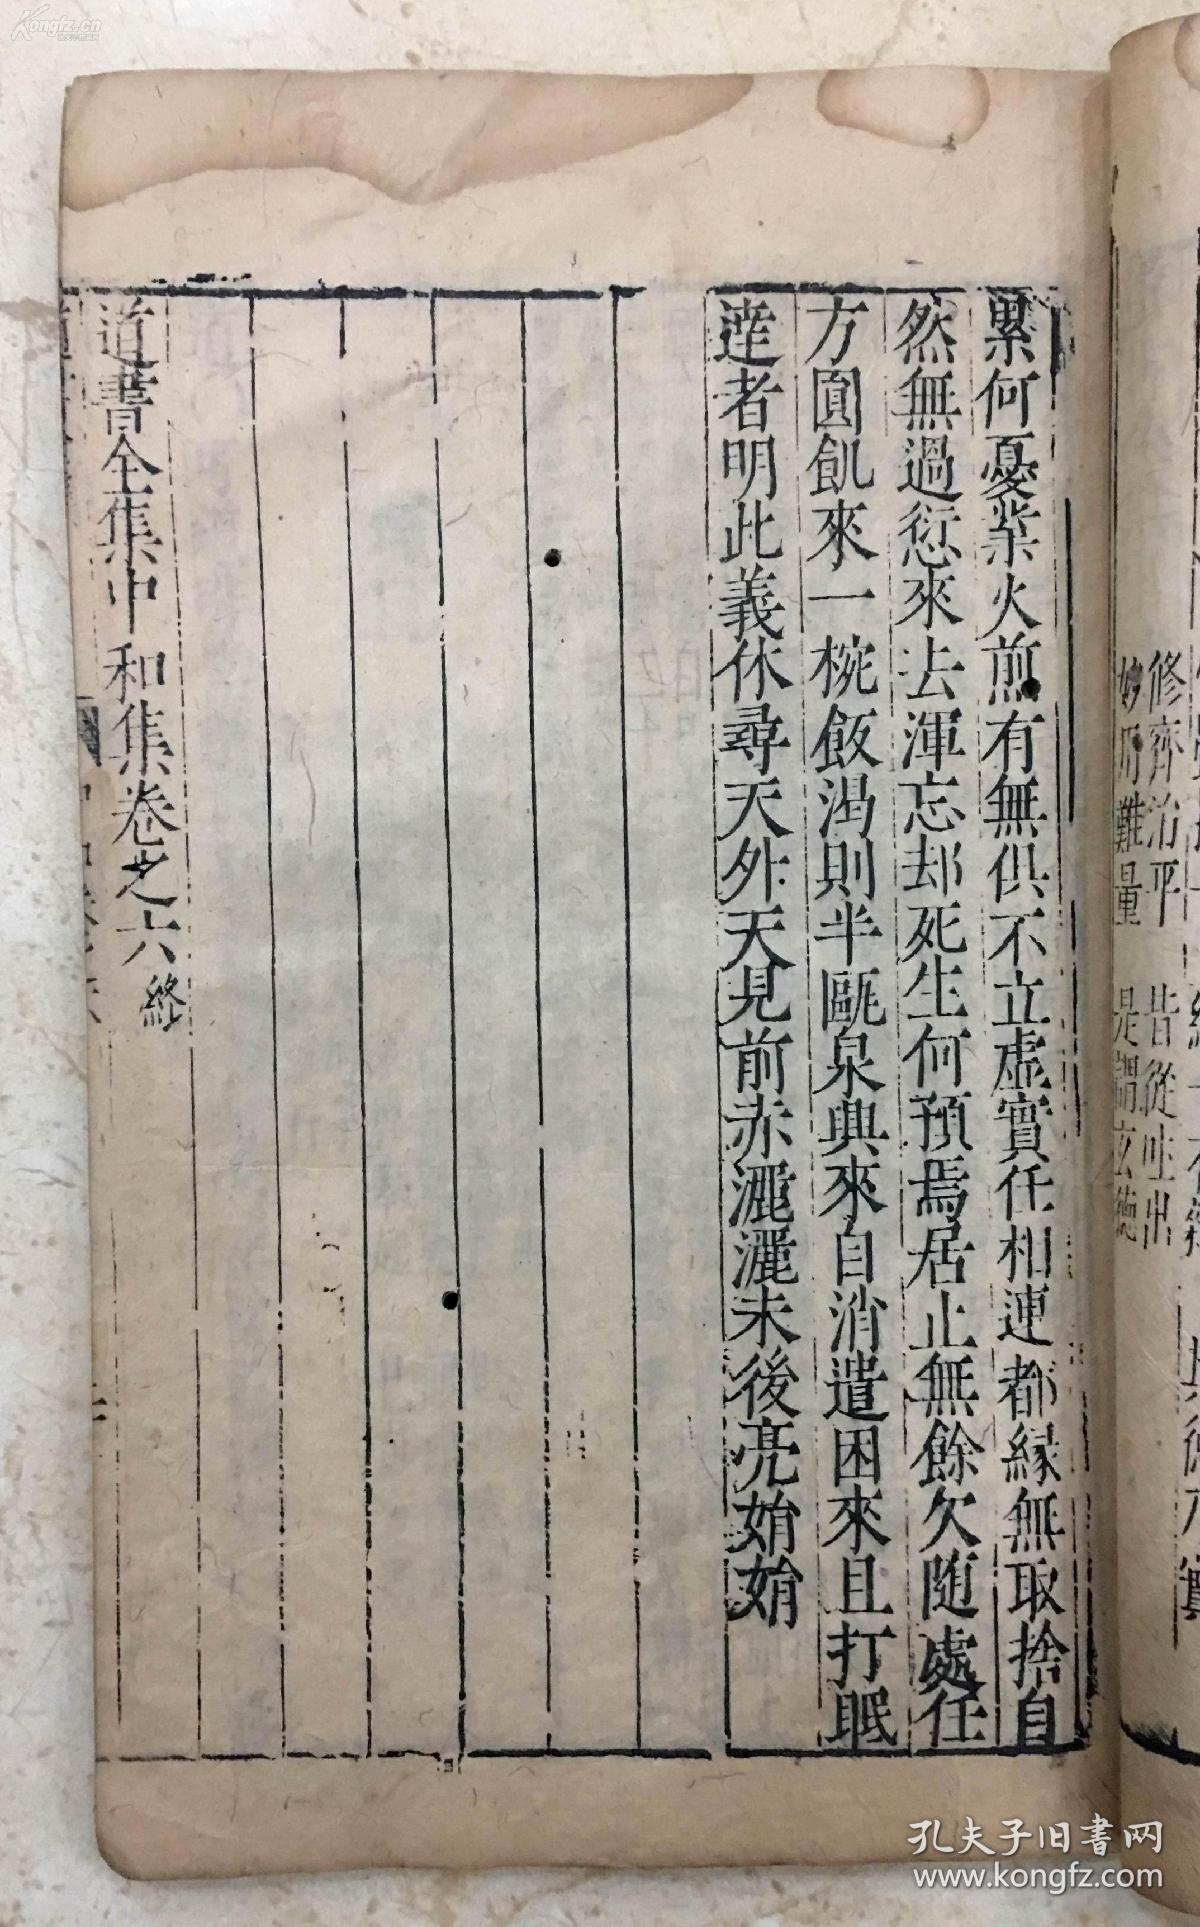 修齊治平　昔從吐出
妙用難量　是謂玄德
累何憂業火煎有無俱不立虛實任相連都緣無取捨自
然無過愆來去渾忘却死生何預焉居止無餘欠随處任
方圓飢來一椀飯渴則半甌泉興來自消遣困來且打眠
達者明此義休尋天外天見前赤灑灑末後亮娋娋
道書全集中和集卷之六終
孔夫子旧書网
www.kongfz.com
Kongfz.cn